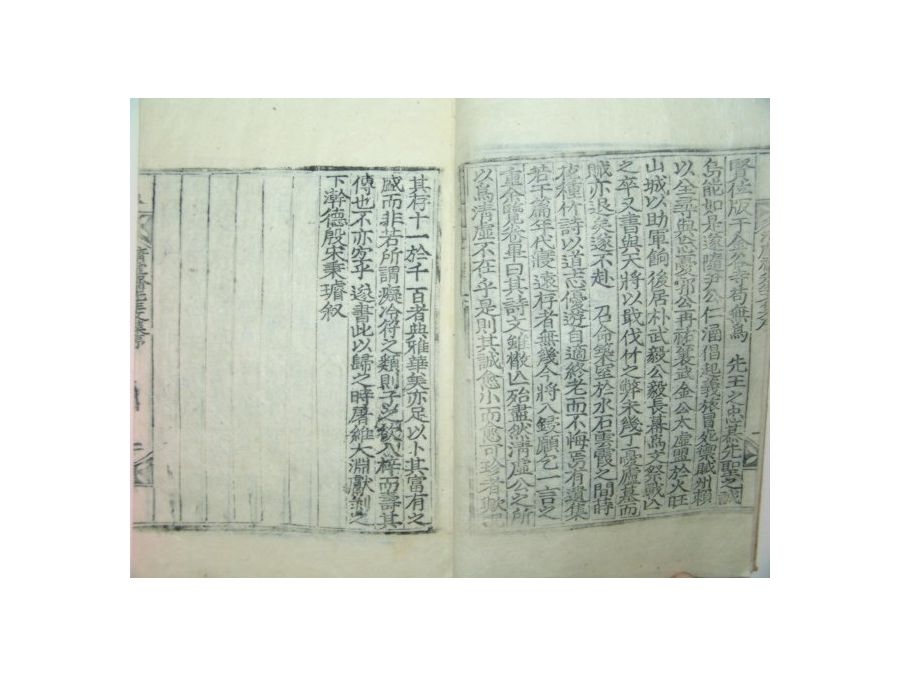 賢位版于金谷寺苟無爲 先王之忠慕先聖之誠
烏能如是遂隨尹公仁涵倡起義旅冒死禦賊州賴
以全尋與忘憂郭公再祐養武金公太虛盟於火旺
山城以助軍餉後居朴武毅公毅長幕爲文祭戰亡
之卒又書與天將以戢伐材之弊未幾丁憂廬墓而
賊亦退矣遂不赴 召命築室於水石雲霞之間時
或種竹詩以道志優遊自適終老而不悔焉有遺集
若干篇年代寢遠存者無幾今將入鋟願乞一言之
重余覽卷畢曰其詩文雖散亡殆盡然淸虛公之所
以爲淸虛不在乎是則其誠愈小而愈可珍者歟
其存十一於千百者典雅華美亦足以卜其富有之
盛而非若所謂癡冶符之類則子之欲入梓而壽其
傳也不亦宜乎遂書此以歸之時屠維大淵獻剝之
下澣德殷宋秉璿叙